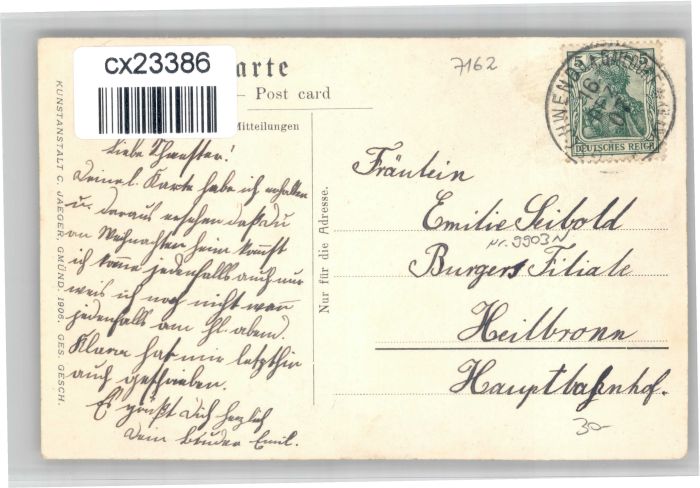 cx23386
arte
Post card
7162
Mitteilungen
DEUTSCHES REICH
KUNSTANSTALT C. JAEGER, GMÜND, 1906. GES. GESCH.
Nur für die Adresse.
Liebe Schwester!
Deine l. Karte habe ich erhalten
u. daraus ersehen daß du
an Weihnachten heim kommst
ich komme jedenfalls auch nur
weis ich noch nicht wann
jedenfalls am hl. abend.
Klara hat mir letzthin
auch geschrieben.
Es grüßt Dich herzlich
Dein Bruder Emil.
Fräulein
Emilie Seibold
nr. 9903 N
Burgers Filiale
Heilbronn
Hauptbahnhof.
30-